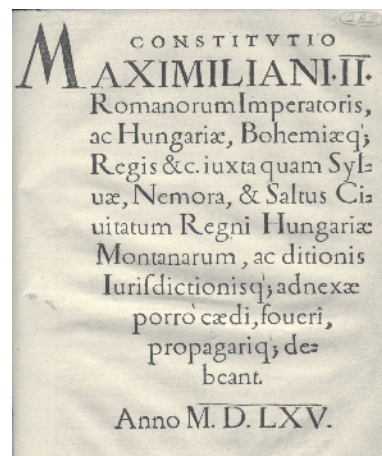 CONSTITVTIO
MAXIMILIANI·II·
Romanorum Imperatoris,
ac Hungariæ, Bohemiæq́;
Regis &c. iuxta quam Syl=
uæ, Nemora, & Saltus Ci=
uitatum Regni Hungariæ
Montanarum, ac ditionis
Iuriſdictionisq́; adnexæ
porrò cædi, foueri,
propagariq́; de=
beant.
Anno M. D. LXV.